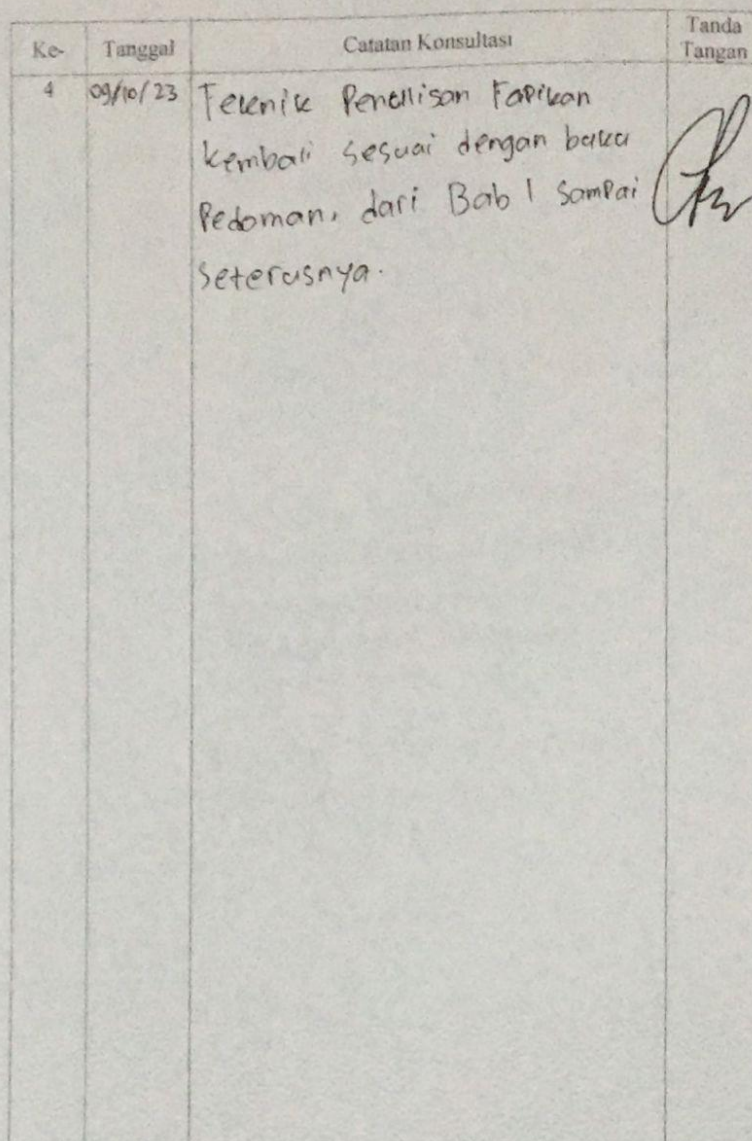 Ke- Tanggal Catatan Konsultasi Tanda Tangan
4 09/10/23 Teknik Penulisan rapikan
kembali sesuai dengan buku
Pedoman, dari Bab 1 sampai
seterusnya.